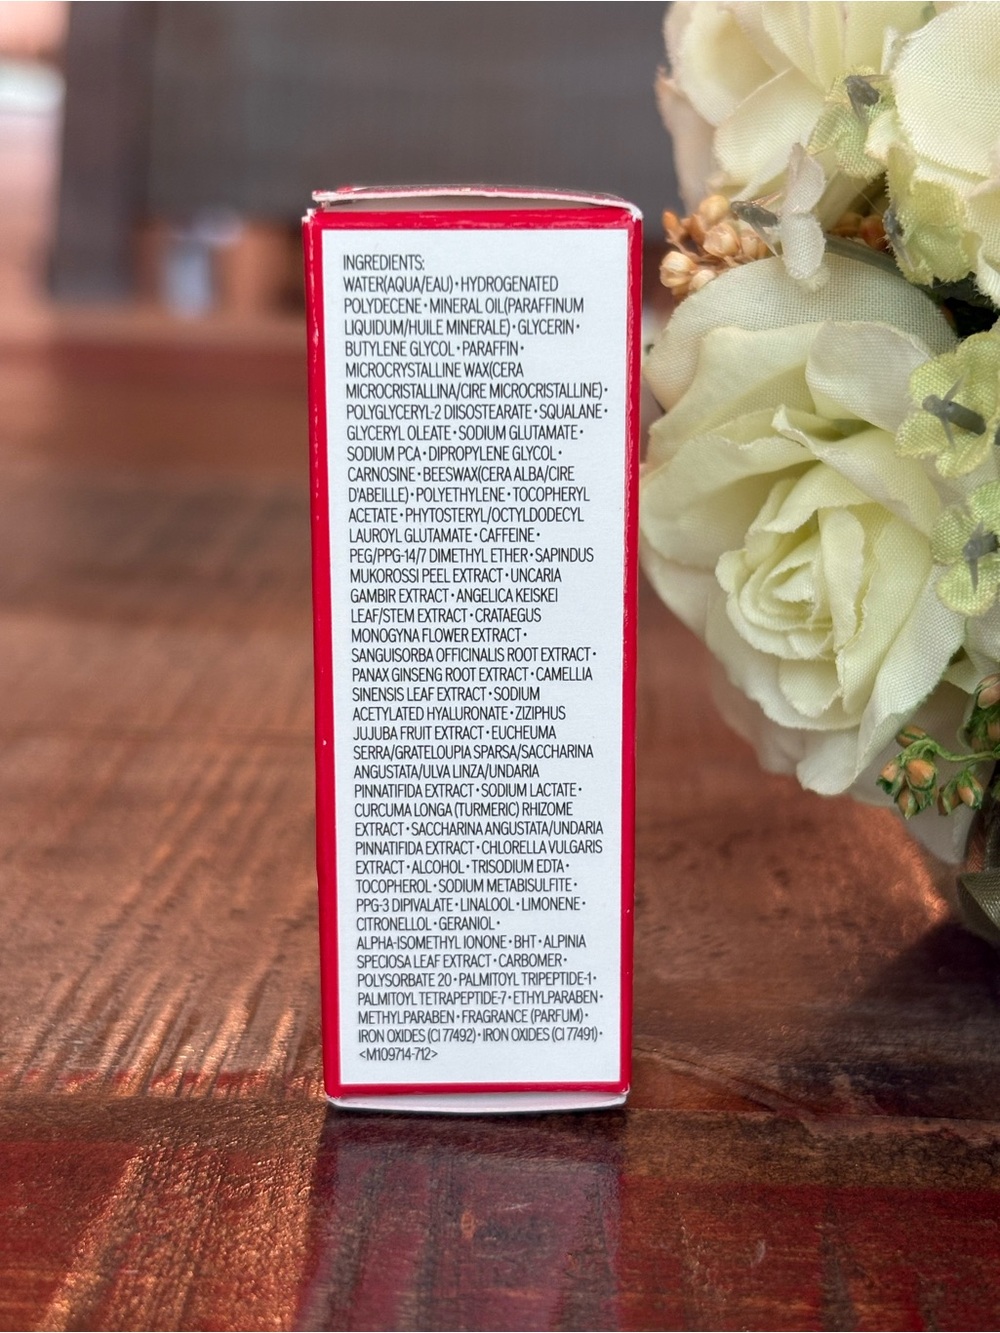 INGREDIENTS:
WATER(AQUA/EAU)･HYDROGENATED
POLYDECENE･MINERAL OIL(PARAFFINUM
LIQUIDUM/HUILE MINERALE)･GLYCERIN･
BUTYLENE GLYCOL･PARAFFIN･
MICROCRYSTALLINE WAX(CERA
MICROCRISTALLINA/CIRE MICROCRISTALLINE)･
POLYGLYCERYL-2 DIISOSTEARATE･SQUALANE･
GLYCERYL OLEATE･SODIUM GLUTAMATE･
SODIUM PCA･DIPROPYLENE GLYCOL･
CARNOSINE･BEESWAX(CERA ALBA/CIRE
D'ABEILLE)･POLYETHYLENE･TOCOPHERYL
ACETATE･PHYTOSTERYL/OCTYLDODECYL
LAUROYL GLUTAMATE･CAFFEINE･
PEG/PPG-14/7 DIMETHYL ETHER･SAPINDUS
MUKOROSSI PEEL EXTRACT･UNCARIA
GAMBIR EXTRACT･ANGELICA KEISKEI
LEAF/STEM EXTRACT･CRATAEGUS
MONOGYNA FLOWER EXTRACT･
SANGUISORBA OFFICINALIS ROOT EXTRACT･
PANAX GINSENG ROOT EXTRACT･CAMELLIA
SINENSIS LEAF EXTRACT･SODIUM
ACETYLATED HYALURONATE･ZIZIPHUS
JUJUBA FRUIT EXTRACT･EUCHEUMA
SERRA/GRATELOUPIA SPARSA/SACCHARINA
ANGUSTATA/ULVA LINZA/UNDARIA
PINNATIFIDA EXTRACT･SODIUM LACTATE･
CURCUMA LONGA (TURMERIC) RHIZOME
EXTRACT･SACCHARINA ANGUSTATA/UNDARIA
PINNATIFIDA EXTRACT･CHLORELLA VULGARIS
EXTRACT･ALCOHOL･TRISODIUM EDTA･
TOCOPHEROL･SODIUM METABISULFITE･
PPG-3 DIPIVALATE･LINALOOL･LIMONENE･
CITRONELLOL･GERANIOL･
ALPHA-ISOMETHYL IONONE･BHT･ALPINIA
SPECIOSA LEAF EXTRACT･CARBOMER･
POLYSORBATE 20･PALMITOYL TRIPEPTIDE-1･
PALMITOYL TETRAPEPTIDE-7･ETHYLPARABEN･
METHYLPARABEN･FRAGRANCE (PARFUM)･
IRON OXIDES (CI 77492)･IRON OXIDES (CI 77491)･
<M109714-712>